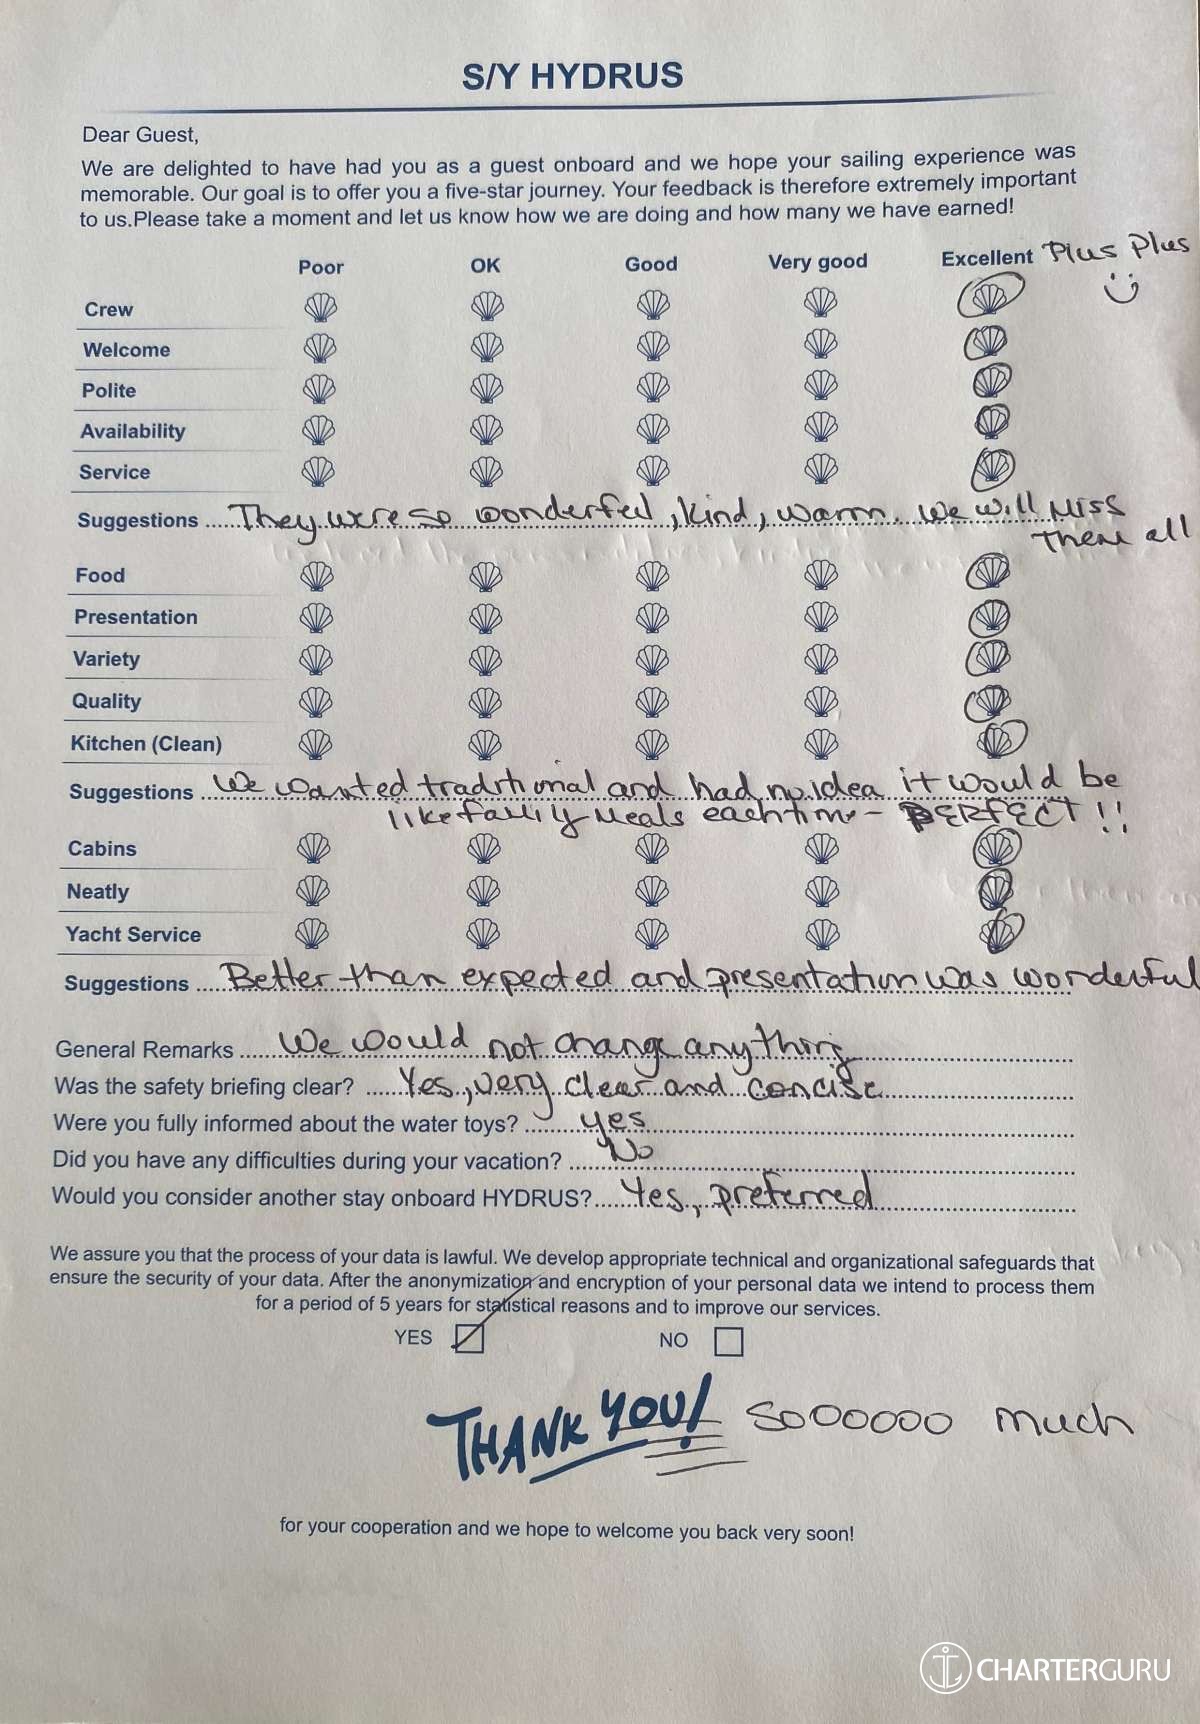 S/Y HYDRUS
Dear Guest,
We are delighted to have had you as a guest onboard and we hope your sailing experience was
memorable. Our goal is to offer you a five-star journey. Your feedback is therefore extremely important
to us.Please take a moment and let us know how we are doing and how many we have earned!
Poor OK Good Very good Excellent Plus Plus
Crew
Welcome
Polite
Availability
Service
Suggestions They were so wonderful, kind, warm. We will miss
them all
Food
Presentation
Variety
Quality
Kitchen (Clean)
Suggestions We wanted traditional and had no idea it would be
like family meals each time - PERFECT!!
Cabins
Neatly
Yacht Service
Suggestions Better than expected and presentation was wonderful
General Remarks We would not change anything
Was the safety briefing clear? Yes, very clear and concise
Were you fully informed about the water toys? yes
Did you have any difficulties during your vacation? No
Would you consider another stay onboard HYDRUS? Yes, preferred
We assure you that the process of your data is lawful. We develop appropriate technical and organizational safeguards that
ensure the security of your data. After the anonymization and encryption of your personal data we intend to process them
for a period of 5 years for statistical reasons and to improve our services.
YES NO
THANK YOU! sooooooo much
for your cooperation and we hope to welcome you back very soon!
CHARTERGURU